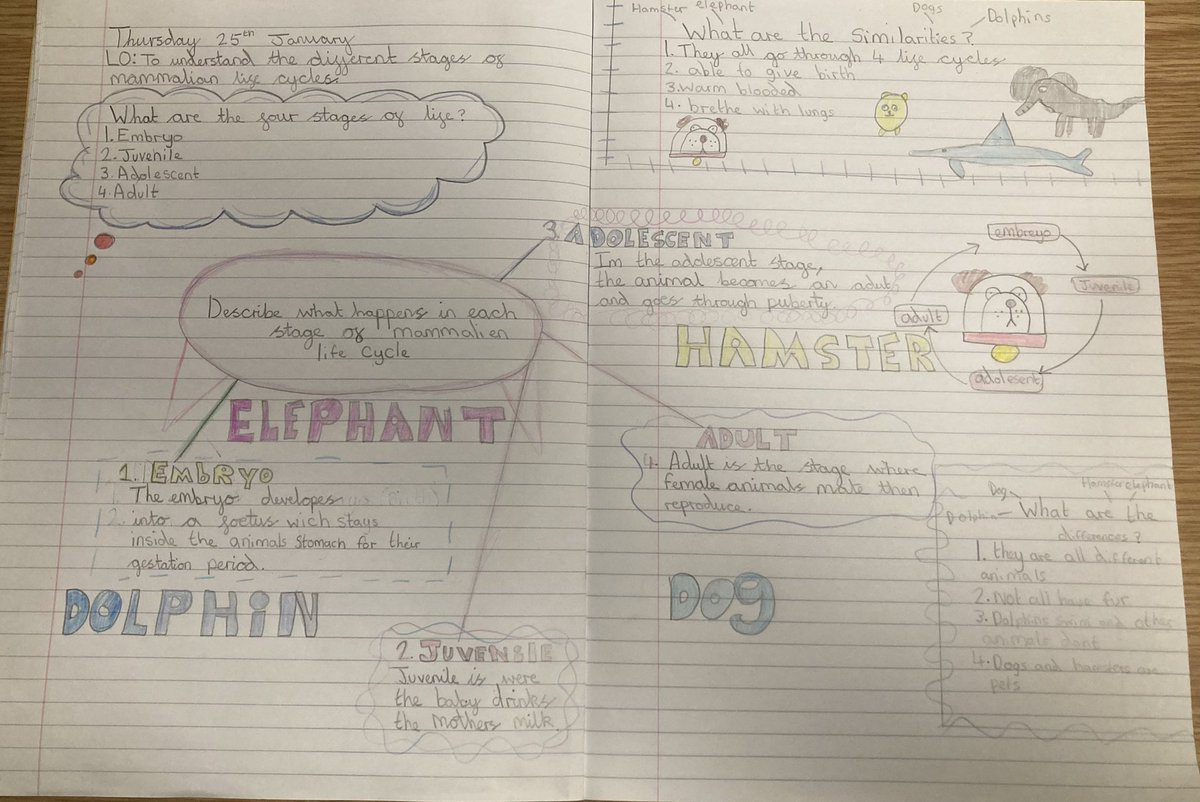 Thursday 25th January
LO: To understand the different stages of
mammalian life cycles
What are the four stages of life?
1. Embryo
2. Juvenile
3. Adolescent
4. Adult
Describe what happens in each
stage of mammalien
life cycle
ELEPHANT
1. EMbRYO
The embryo developes
2. into a foetus wich stays
inside the animals Stomach for their
gestation period.
DOLPHiN
2. JUVENSIE
Juvenile is were
the baby drinks
the mothers milk.
Hamster elephant Dogs Dolphins
What are the Similarities?
1. They all go through 4 life cycles
2. able to give birth
3. warm blooded
4. brethe with lungs
3. ADOLESCENT
Im the adolescent stage,
the animal becomes an adult
and goes through puberty.
embreyo
Juvenile
adolesent
adult
HAMSTER
ADULT
4. Adult is the stage where
female animals mate then
reproduce.
DOg
Dog Hamster elephant
Dolphin What are the
differences?
1. they are all different
animals
2. Not all have fur
3. Dolphins swim and other
animals dont
4. Dogs and hamsters are
pets